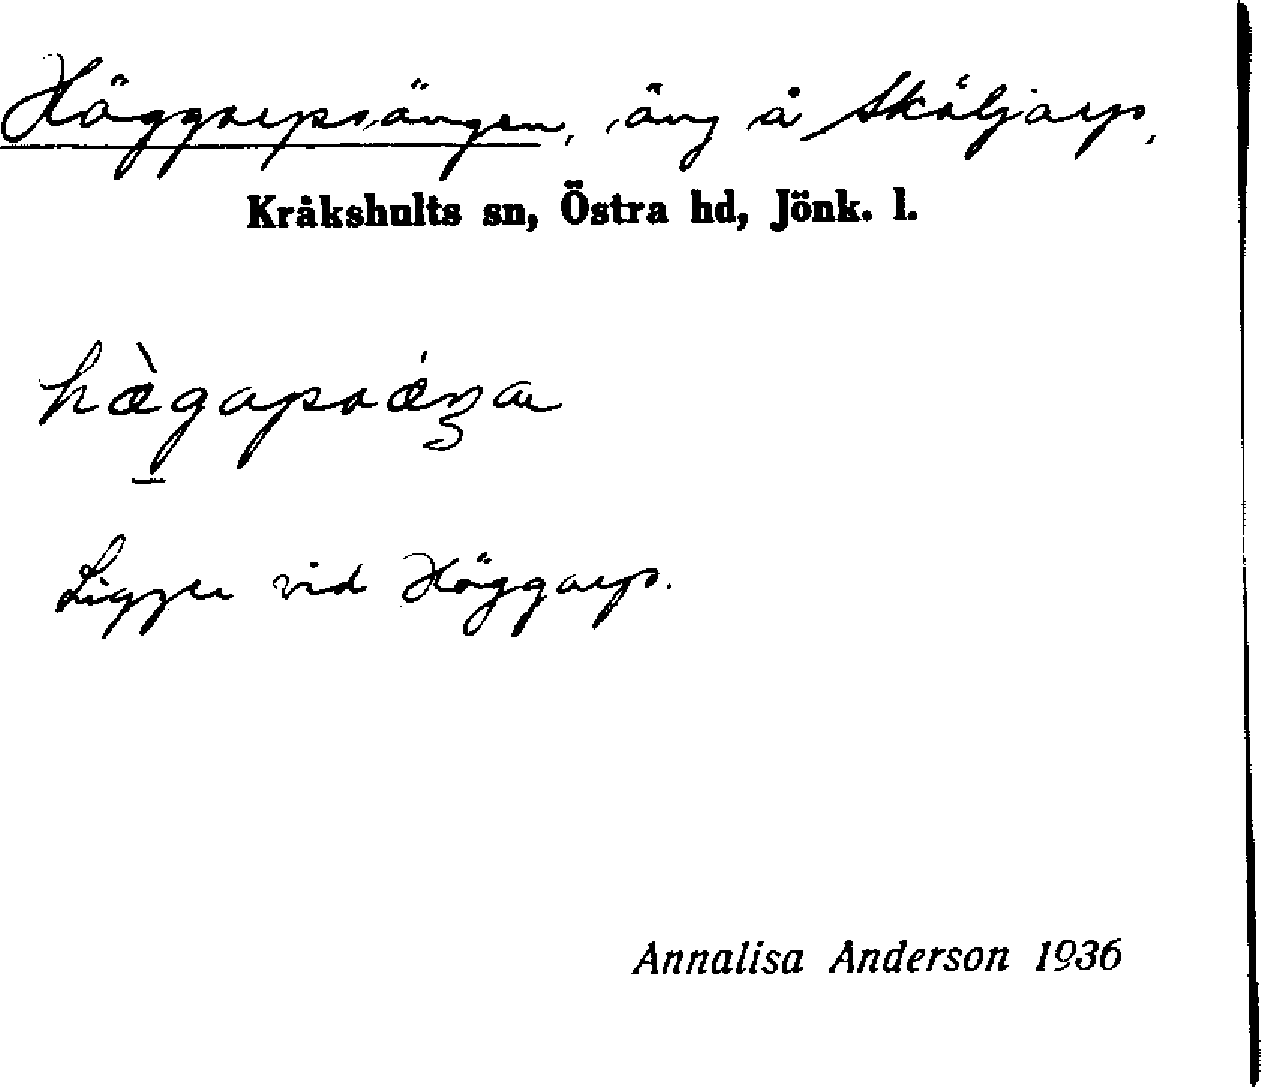 Häggarpsängen, äng å Sköljarp,
Kråkshults sn, Östra hd, Jönk. l.
Ligger vid Häggarp.
Annalisa Anderson 1936